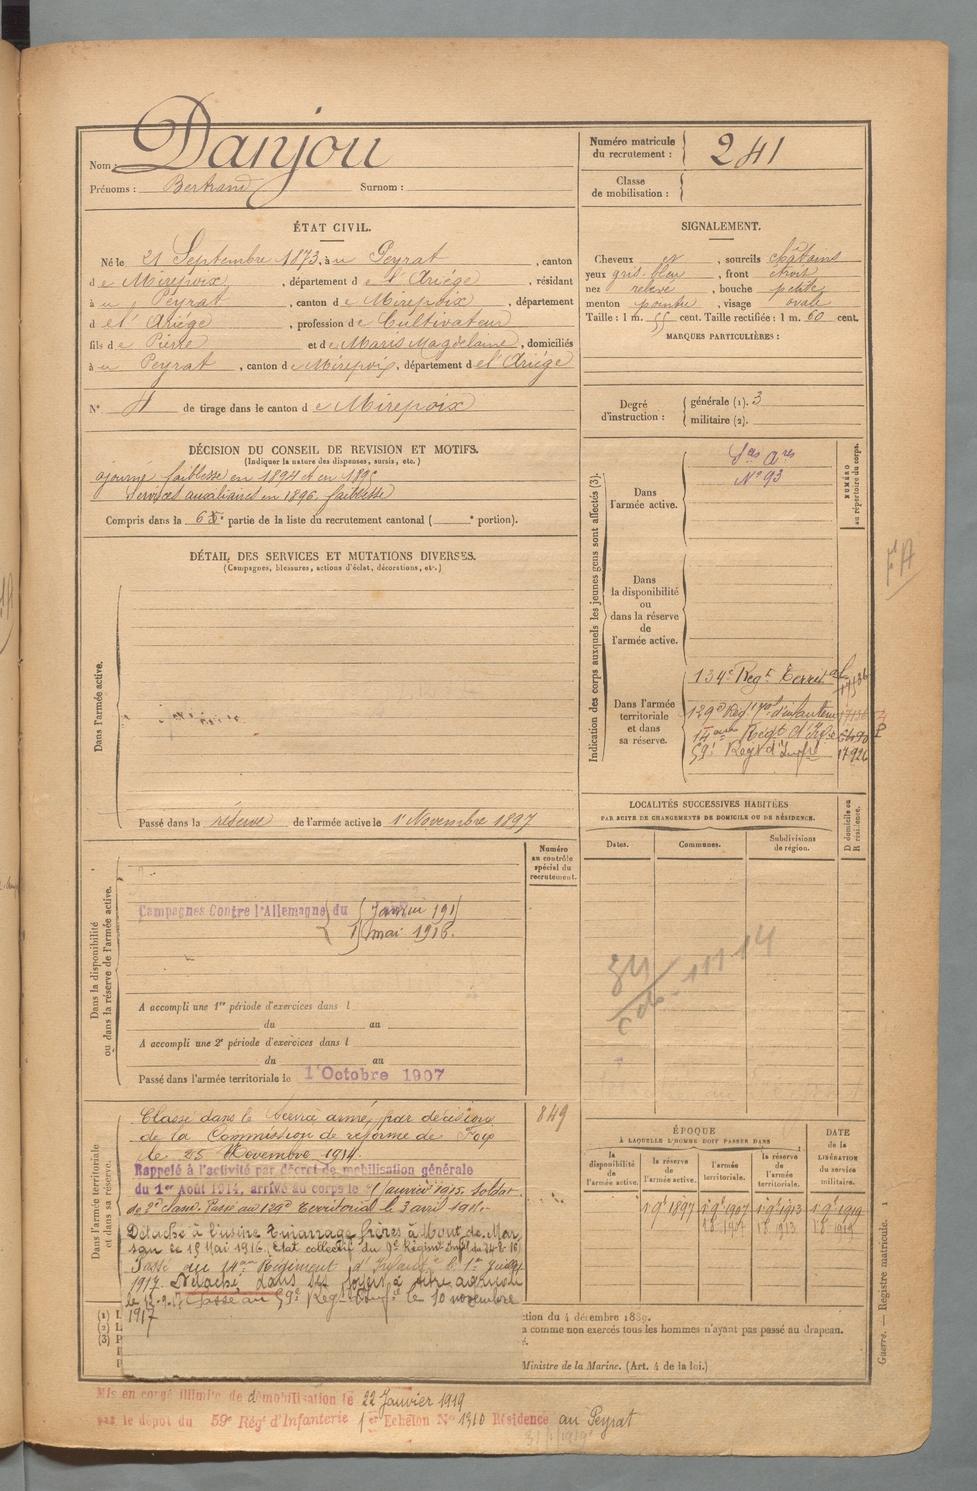 Nom : Danjou
Prénoms : Bertrand Surnom :
Numéro matricule du recrutement : 241
Classe de mobilisation :
ÉTAT CIVIL.
Né le 21 Septembre 1873, à u Peyrat, canton
d e Mirepoix, département d e l'Ariége, résidant
à u Peyrat, canton d e Mirepoix, département
d e l'Ariége, profession d e Cultivateur
fils d e Pierre et d e Marie Magdelaine, domiciliés
à u Peyrat, canton d e Mirepoix, département d e l'Ariége
N° 4 de tirage dans le canton d e Mirepoix
SIGNALEMENT.
Cheveux et, sourcils châtains
yeux gris-bleu, front étroit
nez relevé, bouche petite
menton pointu, visage ovale
Taille : 1 m. 55 cent. Taille rectifiée : 1 m. 60 cent.
MARQUES PARTICULIÈRES :
Degré d'instruction : générale (1). 3
militaire (2).
DÉCISION DU CONSEIL DE REVISION ET MOTIFS.
(Indiquer la nature des dispenses, sursis, etc.)
ajourné faiblesse en 1894 et en 1895
Services auxiliaires en 1896. faiblesse
Compris dans la 6e partie de la liste du recrutement cantonal ( e portion).
DÉTAIL DES SERVICES ET MUTATIONS DIVERSES.
(Campagnes, blessures, actions d'éclat, décorations, etc.)
Dans l'armée active.
Passé dans la réserve de l'armée active le 1r Novembre 1897
Indication des corps auxquels les jeunes gens sont affectés (3).
NUMÉRO au répertoire du corps.
Dans l'armée active.
Sces Ares
N° 93
Dans la disponibilité ou dans la réserve de l'armée active.
Dans l'armée territoriale et dans sa réserve.
134e Regt Territal
129e Reg Tal d'infanterie
14eme Regt d'Infie
59e Regt d'Infie 17926
LOCALITÉS SUCCESSIVES HABITÉES
PAR SUITE DE CHANGEMENTS DE DOMICILE OU DE RÉSIDENCE.
Dates. Communes. Subdivisions de région.
D domicile ou R résidence.
Numéro au contrôle spécial du recrutement.
Dans la disponibilité ou dans la réserve de l'armée active.
Campagnes Contre l'Allemagne du Janvier 191
mai 1916.
A accompli une 1re période d'exercices dans l
du au
A accompli une 2e période d'exercices dans l
du au
Passé dans l'armée territoriale le 1r Octobre 1907
849
Dans l'armée territoriale et dans sa réserve.
Classé dans le Service armé, par décision
de la Commission de réforme de Foix
du 25 Novembre 1914.
Rappelé à l'activité par décret de mobilisation générale
du 1er Août 1914, arrivé au corps le Janvier 1915. Soldat
de 2e classe. Passé au 129e Territorial le 3 avril 191
Détaché à l'usine frères à Mont-de-Mar
san le 15 Mai 1916. (Etat collectif du 9e Régimt
Passé au 14me Régiment d'Infanterie le 1er Juillet
1917. Détaché dans ses foyers à titre agricole
Passé au 59e Regt d'Infie le 10 novembre
1917
ÉPOQUE
À LAQUELLE L'HOMME DOIT PASSER DANS
la disponibilité de l'armée active.
la réserve de l'armée active.
l'armée territoriale.
la réserve de l'armée territoriale.
DATE de la LIBÉRATION du service militaire.
1 9e 1897 1 9e 1907 1 9e 1913 1 9e 1919
(1) L
(2) L
(3)
ction du 4 décembre 1889.
a comme non exercés tous les hommes n'ayant pas passé au drapeau.
Ministre de la Marine. (Art. 4 de la loi.)
Guerre. — Registre matricule. 1
Mis en congé illimité de démobilisation le 22 Janvier 1919
par le dépôt du 59e Régt d'Infanterie 1er Echelon N° 1310 Résidence au Peyrat